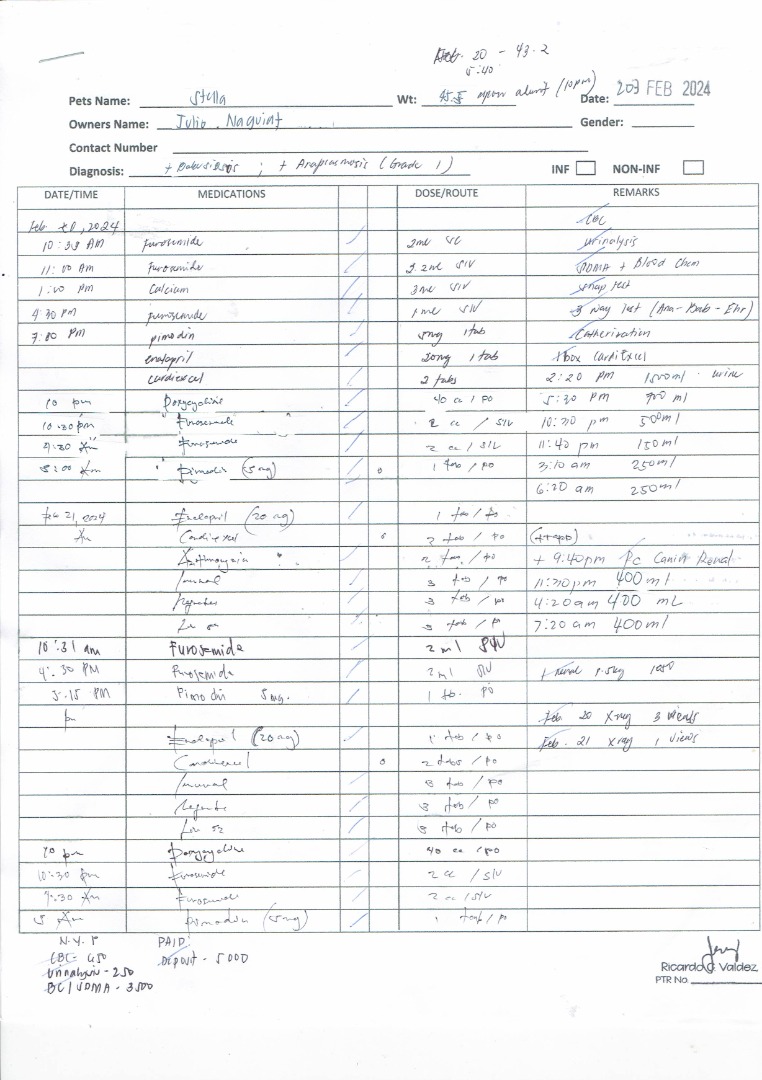 Feb. 20 - 43.2
5:40
Pets Name: Stella Wt: 45.5 upon (10pm) Date: 20 FEB 2024
Owners Name: Julio Gender:
Contact Number
Diagnosis: + Babesiosis ; + Anaplasmosis (Grade 1) INF NON-INF
DATE/TIME MEDICATIONS DOSE/ROUTE REMARKS
Feb. 20, 2024 CBC
10:33 AM Furosemide 2ml urinalysis
11:00 AM Furosemide 2.2ml SIV SDMA + Blood Chem
1:00 PM Calcium 3ml SIV snap test
4:30 PM furosemide 1ml SIV 3 way test (Ana-Bab-Ehr)
7:00 PM pimodin 5mg 1 tab Catherization
enalapril 20mg 1 tab 1box Cardiexcel
cardiexcel 2 tabs 2:20 PM 1500ml urine
10 pm Doxycycline 40 cc / PO 5:30 PM 900 ml
10:30pm Furosemide 2 cc / SIV 10:30 pm 500ml
4:30 Am Furosemide 2 cc / SIV 11:40 pm 150ml
5:00 Am Pimodin (5mg) 1 tab / PO 3:10 am 250ml
6:20 am 250ml
Feb 21, 2024 Enalapril (20mg) 1 tab / PO
Am Cardiexcel 2 tab / PO
2 tab / PO + 9:40pm Pc Canin Renal
Imunal 3 tab / PO 11:30pm 400ml
3 tab / PO 4:20am 400 mL
3 tab / PO 7:20 am 400ml
10:31 am Furosemide 2ml SIV
4:30 PM Furosemide 2ml SIV 1 Renal
5:15 PM Pimodin 5mg. 1 tb. PO
pm Feb. 20 Xray 3 views
Enalapril (20mg) 1 tab / PO Feb. 21 Xray 1 views
Cardiexcel 2 tabs / PO
Imunal 3 tab / PO
3 tab / PO
3 tab / PO
10 pm Doxycycline 40 cc / PO
10:30 pm Furosemide 2 cc / SIV
4:30 Am Furosemide 2 cc / SIV
5 Am Pimodin (5mg) 1 tab / P
PAID:
CBC - 450 Deposit - 5000
Urinalysis - 250
BC/SDMA - 3500
Ricardo G. Valdez
PTR No.